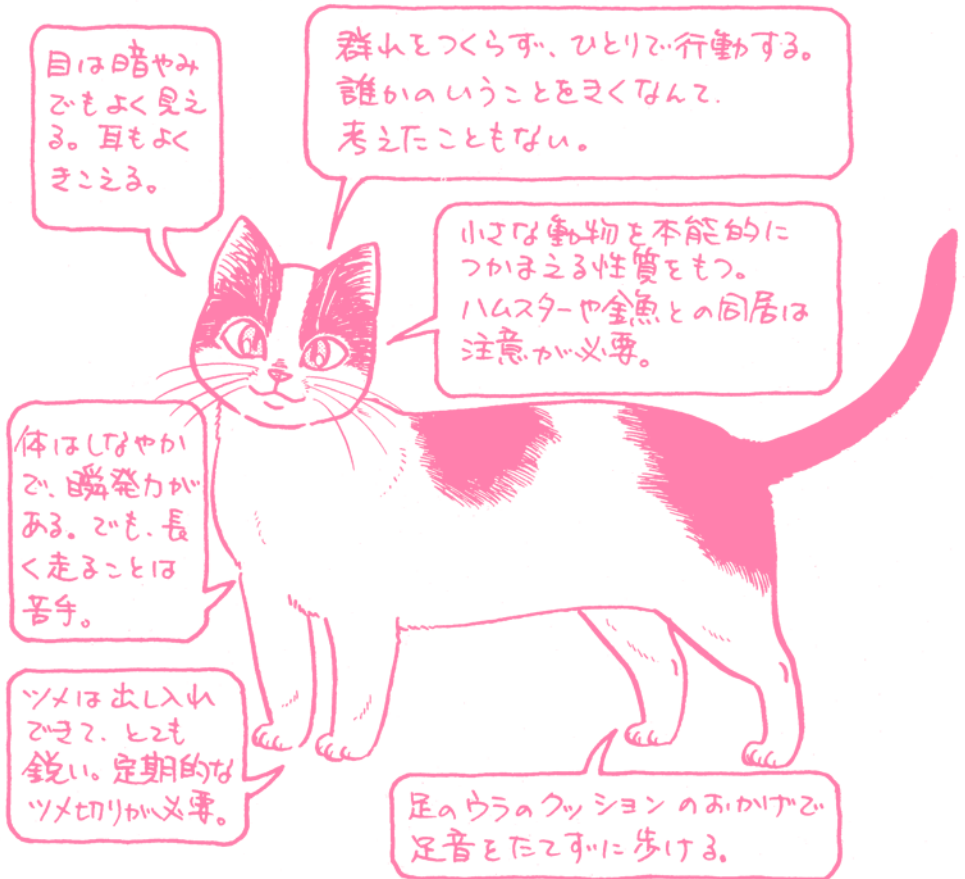 目は暗やみ
でもよく見え
る。耳もよく
きこえる。
群れをつくらず、ひとりで行動する。
誰かのいうことをきくなんて、
考えたこともない。
小さな動物を本能的に
つかまえる性質をもつ。
ハムスターや金魚との同居は
注意が必要。
体はしなやか
で、瞬発力が
ある。でも、長
く走ることは
苦手。
ツメは出し入れ
できて、とても
鋭い。定期的な
ツメ切りが必要。
足のウラのクッションのおかげで
足音をたてずに歩ける。